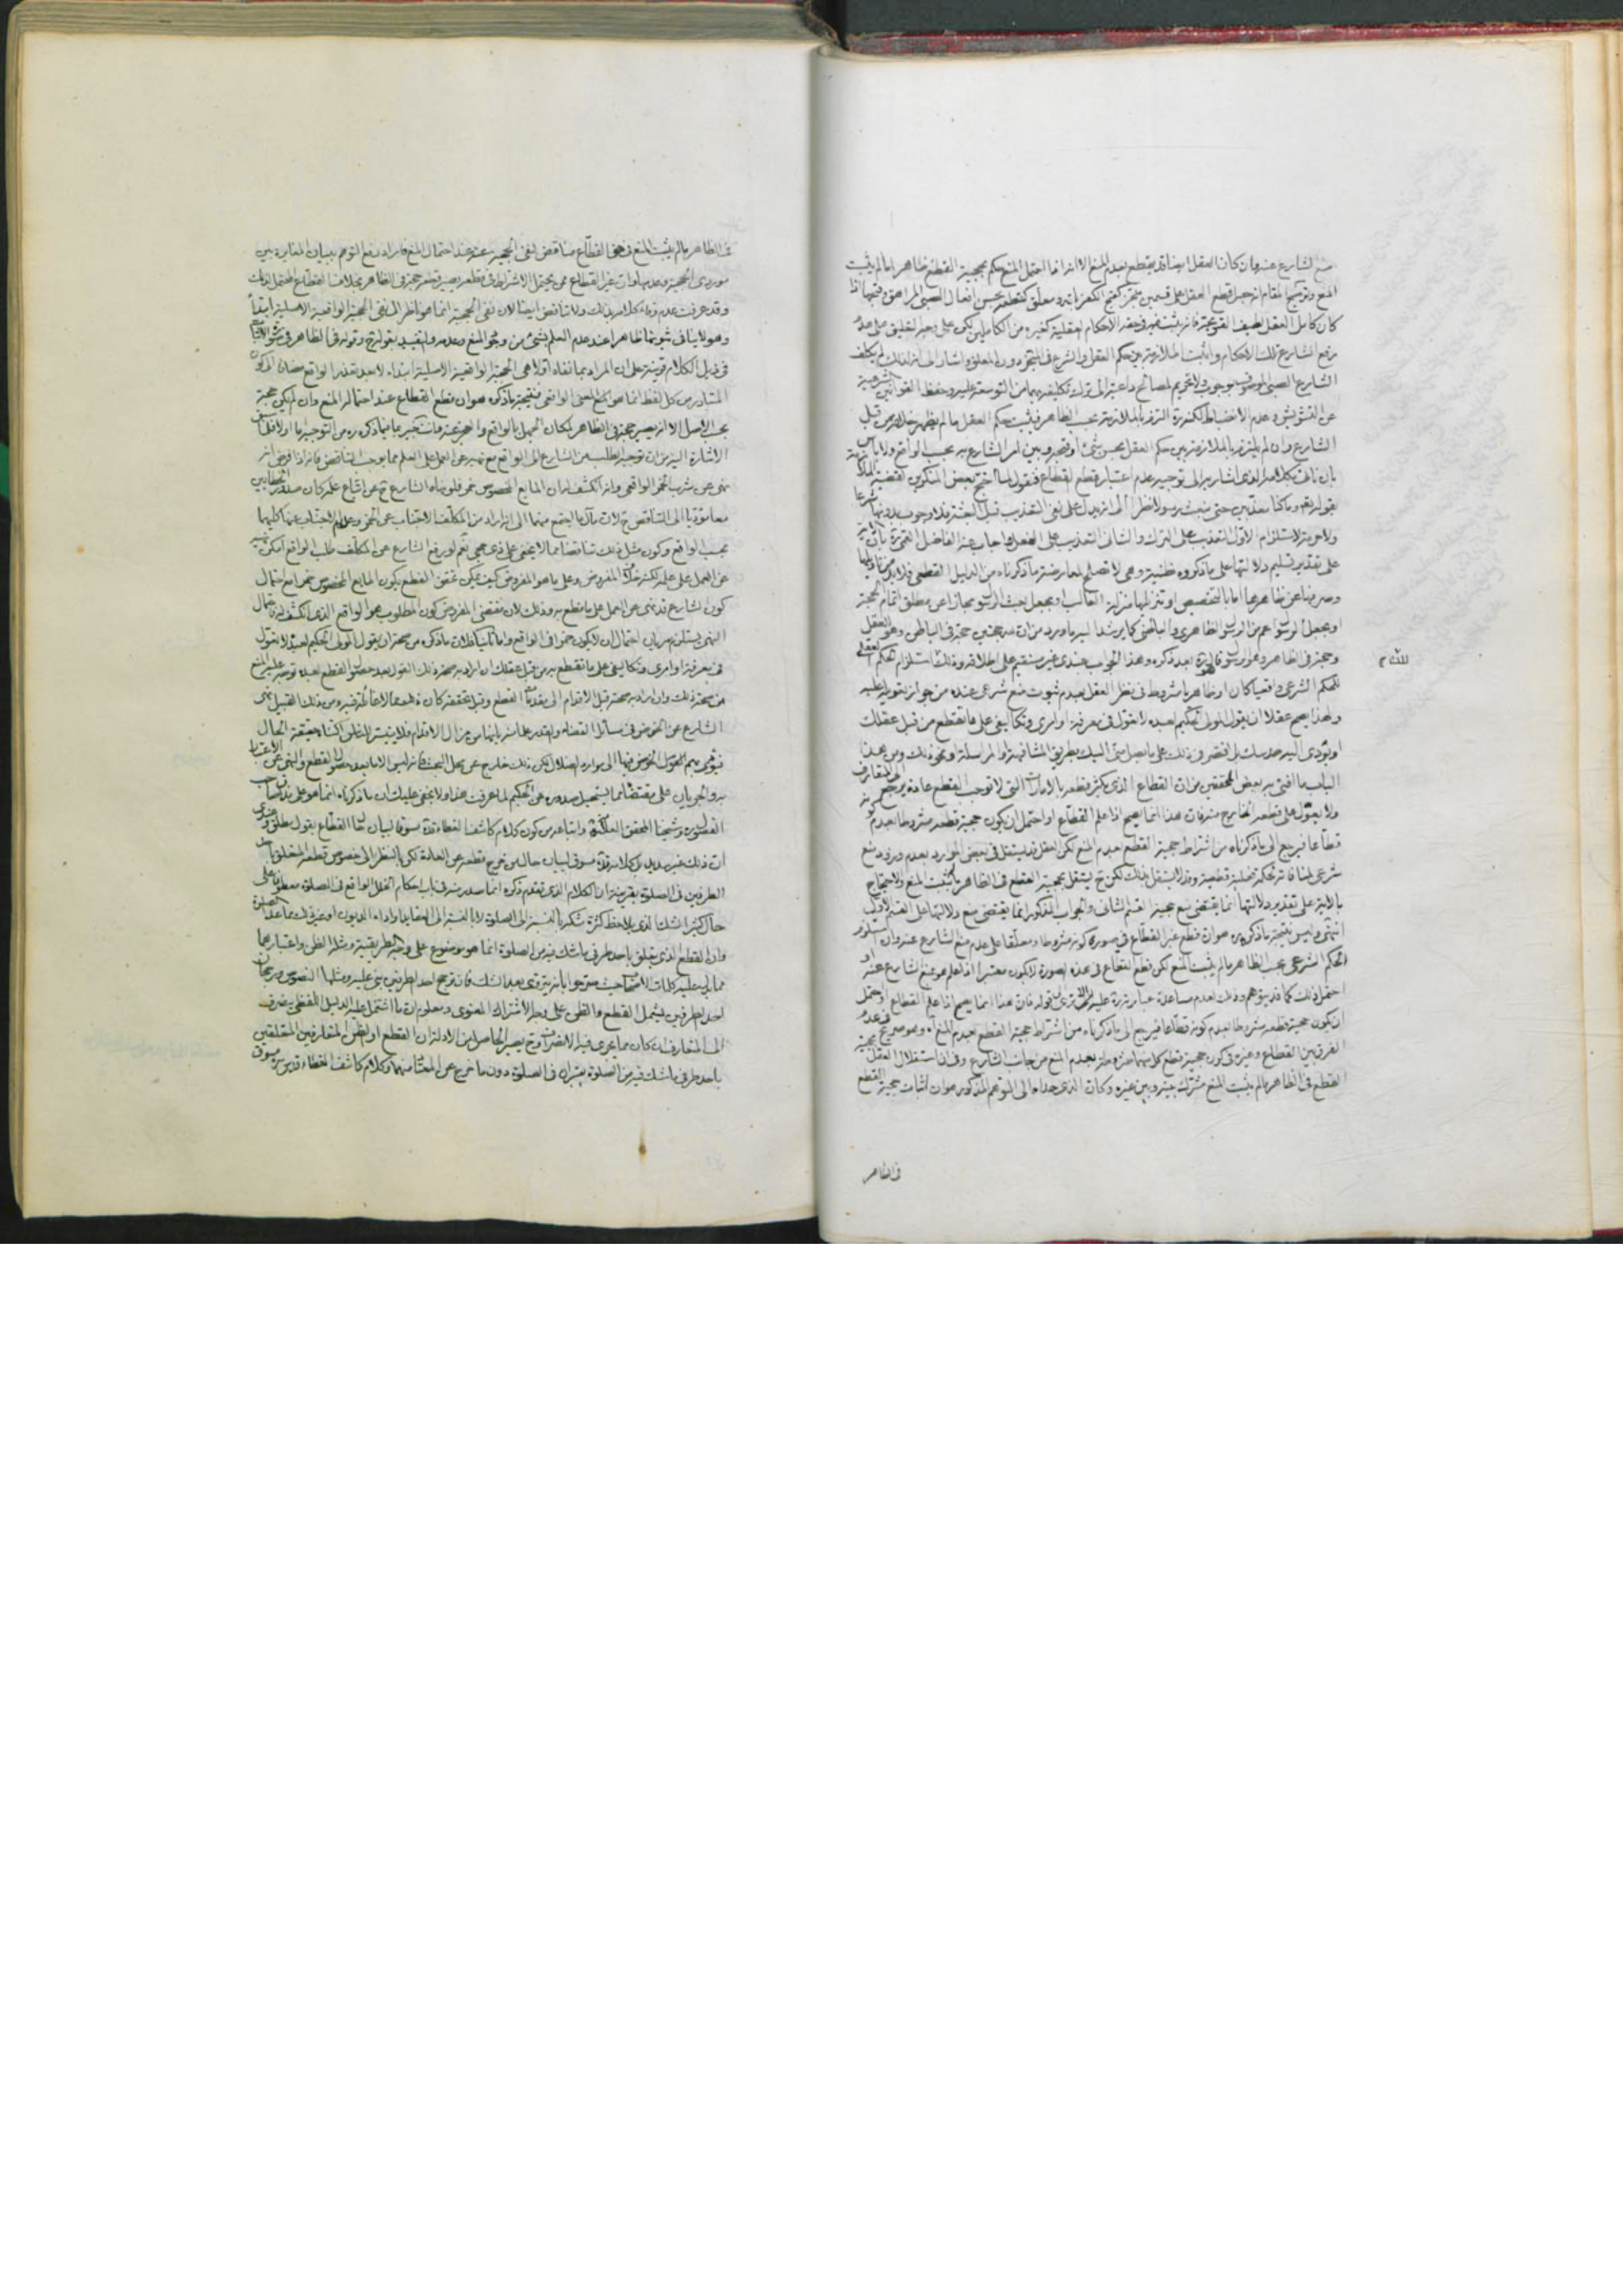 منع الشارع عنه وان كان العقل ايضا قد يقطع بعدم المنع الا انه اذا احتمل المنع يحكم بحجية القطع ظاهرا ما لم يثبت
المنع وتوضيح المقام انه جعل قطع العقل على قسمين منجز كقبح الكفر بالله ومعلق كقطعه بحسن افعال الصبي المراهق وقبحها اذا
كان كامل العقل لطيف القريحة فانه يثبت في حقه الاحكام العقلية كغيره من الكاملين لكن على وجه التعليق على عدم
رفع الشارع تلك الاحكام واثبت الملازمة بين حكم العقل والشرع في المنجز دون المعلق واشار الى انه لذلك لم يكلف
الشارع الصبي الموصوف بوجوب ولا تحريم لمصالح داعية الى ترك تكليفه بهما من التوسعة عليه وحفظ القوانين الشرعية
عن التشويش وعدم الانضباط لكنه قده التزم بالملازمة بحسب الظاهر فيثبت حكم العقل ما لم يظهر خلافه من قبل
الشارع وان لم يلتزم بالملازمة بين حكم العقل بحسن شئ او قبحه وبين امر الشارع به بحسب الواقع ولا باس
بان نأتي بكلامه الذي اشار به الى توجيه عدم اعتبار قطع القطاع فنقول لما احتج بعض المنكرين لقضية الملازمة
بقوله تعم وما كنا معذبين حتى نبعث رسولا نظرا الى انه يدل على نفي التعذيب قبل البعثة فلا وجوب بدونها شرعا
ولا حرمة لاستلزام الاول التعذيب على الترك والثاني التعذيب على الفعل اجاب عنه الفاضل القمي ره بان الاية
على تقدير تسليم دلالتها على ما ذكروه ظنية وهي لا تصلح لمعارضة ما ذكرناه من الدليل القطعي فلا بد من تاويلها
وصرفها عن ظاهرها اما بالتخصيص او تنزيلها منزلة الغالب او بجعل بعث الرسول مجازا عن مطلق اتمام الحجة
او بجعل الرسول اعم من الرسول الظاهري والباطني كما يرشد اليه ما ورد من ان لله حجتين حجة في الباطن وهو العقل
وحجة في الظاهر وهو الرسول قال قده بعد ذكره وهذا الجواب عندي غير مستقيم على اطلاقه وذلك لان استلزام الحكم العقلي
للحكم الشرعي واقعيا كان او ظاهريا مشروط في نظر العقل بعدم ثبوت منع شرعي عنده من جواز تعويله عليه
ولهذا يصح عقلا ان يقول المولى الحكيم لعبده لا تعول في معرفة اوامري وتكاليفي على ما تقطع به من قبل عقلك
او يؤدي اليه حدسك بل اقتصر في ذلك على ما يصل مني اليك بطريق المشافهة او المراسلة او نحو ذلك ومن هذا
الباب ما افتى به بعض المحققين من ان القطاع الذي يكثر قطعه بالامارات التي لا توجب القطع عادة يرجع الى المتعارف
ولا يعول على قطعه الخارج منه فان هذا انما يصح اذا علم القطاع او احتمل ان يكون حجية قطعه مشروطة بعدم كونه
قطاعا فيرجع الى ما ذكرناه من اشتراط حجية القطع بعدم المنع لكن العقل قد يستقل في بعض الموارد بعدم ورود منع
شرعي لمنافاته لحكمة قطعية وقد لا يستقل بذلك لكن ح يستقل بحجية القطع في الظاهر ما لم يثبت المنع والاحتجاج
بالاية على تقدير دلالتها انما يقتضي منع حجية القسم الثاني والجواب المذكور انما يقتضي منع دلالتها على القسم الاول
انتهى وليس نتيجة ما ذكره ره هو ان قطع غير القطاع في صورة كونه مشروطا ومعلقا على عدم منع الشارع عنه وان استلزم
الحكم الشرعي بحسب الظاهر ما لم يثبت المنع لكن قطع القطاع في هذه الصورة لا يكون معتبرا اذا علم هو بمنع الشارع عنه او
احتمل ذلك كما قد يتوهم وذلك لعدم مساعدة عبارته قده عليه الا ترى الى قوله فان هذا انما يصح اذا علم القطاع او احتمل
ان يكون حجية قطعه مشروطا بعدم كونه قطاعا فيرجع الى ما ذكرناه من اشتراط حجية القطع بعدم المنع آه وهو صريح في عدم
الفرق بين القطاع وغيره في كون حجية قطع كل منهما مشروطة بعدم المنع من جانب الشارع وفي ان استقلال العقل بحجية
القطع في الظاهر ما لم يثبت المنع مشترك بينه وبين غيره وكان الذي حداه الى التوهم المذكور هو ان اثبات حجية القطع
في الظاهر
في الظاهر ما لم يثبت المنع في حق القطاع مناقض لنفي الحجية عنه عند احتمال المنع فاراد دفع التوهم ببيان المغايرة بين
موردي الحجية وعدمها وان غير القطاع ممن يحتمل الاشتراط في قطعه يصير قطعه حجة في الظاهر بخلاف القطاع المحتمل لذلك
وقد عرفت عدم وفاء كلامه بذلك ولا تناقض ايضا لان نفي الحجية انما هو ناظر الى نفي الحجية الواقعية الاصلية ابتداء
وهو لا ينافي ثبوتها ظاهرا عند عدم العلم بشئ من وجود المنع وعدمه
في ذيل الكلام قرينة على ان المراد بما نفاه اولا هي الحجية الواقعية الاصلية ابتداء
المتبادر من كل لفظ انما هو المعنى الواقعي فنتيجة ما ذكره هو ان قطع القطاع عند احتماله المنع وان لم يكن حجة
بحسب الاصل الا انه يصير حجة في الظاهر لمكان الجهل بالواقع والعجز عنه وانت خبير بما فيما ذكره ره من التوجيه اما اولا فلما سبق
الاشارة اليه من ان توجيه الطلب من الشارع الى الواقع مع نهيه عن العمل على العلم مما يوجب التناقض فانه اذا فرض انه
نهى عن شرب الخمر الواقعي وانه انكشف له ان المايع المخصوص خمر فلو نهاه الشارع ح عن اتباع علمه كان صدور الخطابين
معا مؤديا الى التناقض
بحسب الواقع وكون مثل ذلك تناقضا مما لا يخفى على ذي حجى نعم لو رفع الشارع عن المكلف طلب الواقع امكن نهيه
عن العمل على علمه لكنه خلاف المفروض وعلى ما هو المفروض كيف يمكن تحقق القطع بكون المايع المخصوص خمرا مع احتمال
كون الشارع قد نهى عن العمل على ما يقطع به وذلك لان مقتضى المفروض كون المطلوب هو الواقع الذي انكشف له واحتمال
النهي يستلزم سريان احتمال ان لا يكون خمرا في الواقع واما ثانيا فلان ما ذكره من صحة ان يقول المولى الحكيم لعبده لا تعول
في معرفة اوامري وتكاليفي على ما تقطع به من قبل عقلك ان اراد به صحة ذلك القول بعد حصول القطع لعبده توجه عليه المنع
من صحة ذلك وان اراد به صحته قبل الاقدام الى مقدمات القطع وقبل تحققه كان ذلك مما لا غائلة فيه ومن ذلك القبيل نهي
الشارع عن الخوض في مسائل القضاء والقدر
فيؤدي بهم الخوض فيها الى موارد الضلال لكن ذلك خارج عن محل البحث فانه ليس الا ما بعد حصول القطع والنهي عن الاعتناء
به والجريان على مقتضاه مما يستحيل صدوره عن الحكيم لما عرفت هذا ولا يخفى عليك ان ما ذكرناه انما هو على مذاق صاحب
الفصول ره وشيخنا المحقق العلامة
ان ذلك غير سديد بل كلامه قده مسوق لبيان حال من خرج قطعه عن العادة لكن بالنظر الى خصوص قطعه المتعلق باحد
الطرفين في الصلوة بقرينة ان الكلام الذي تقدم ذكره انما صدر منه في باب احكام الخلل الواقع في الصلوة
حال كثير الشك الذي يلاحظ كثرة شكه بالنسبة الى الصلوة لا بالنسبة الى العقايد واداء الديون او غير ذلك مما عدا الصلوة
وان القطع الذي يتعلق باحد طرفي ما شك فيه من الصلوة انما هو موضوع على وجه الطريقية ومثله الظن واعتبارهما
مما يدل عليه كلمات الاصحاب حيث صرحوا بانه يتروى بعد الشك فان ترجح احد الطرفين بنى عليه ومثلها النصوص ورجحان
احد الطرفين يشمل القطع والظن على وجه الاشتراك المعنوي ومعلوم ان ما اشتمل عليه الدليل اللفظي ينصرف
الى المتعارف
باحد طرفي ما شك فيه من الصلوة يعتبران في الصلوة دون ما خرج عن المعتاد منهما وكلام كاشف الغطاء قدس سره مسوق